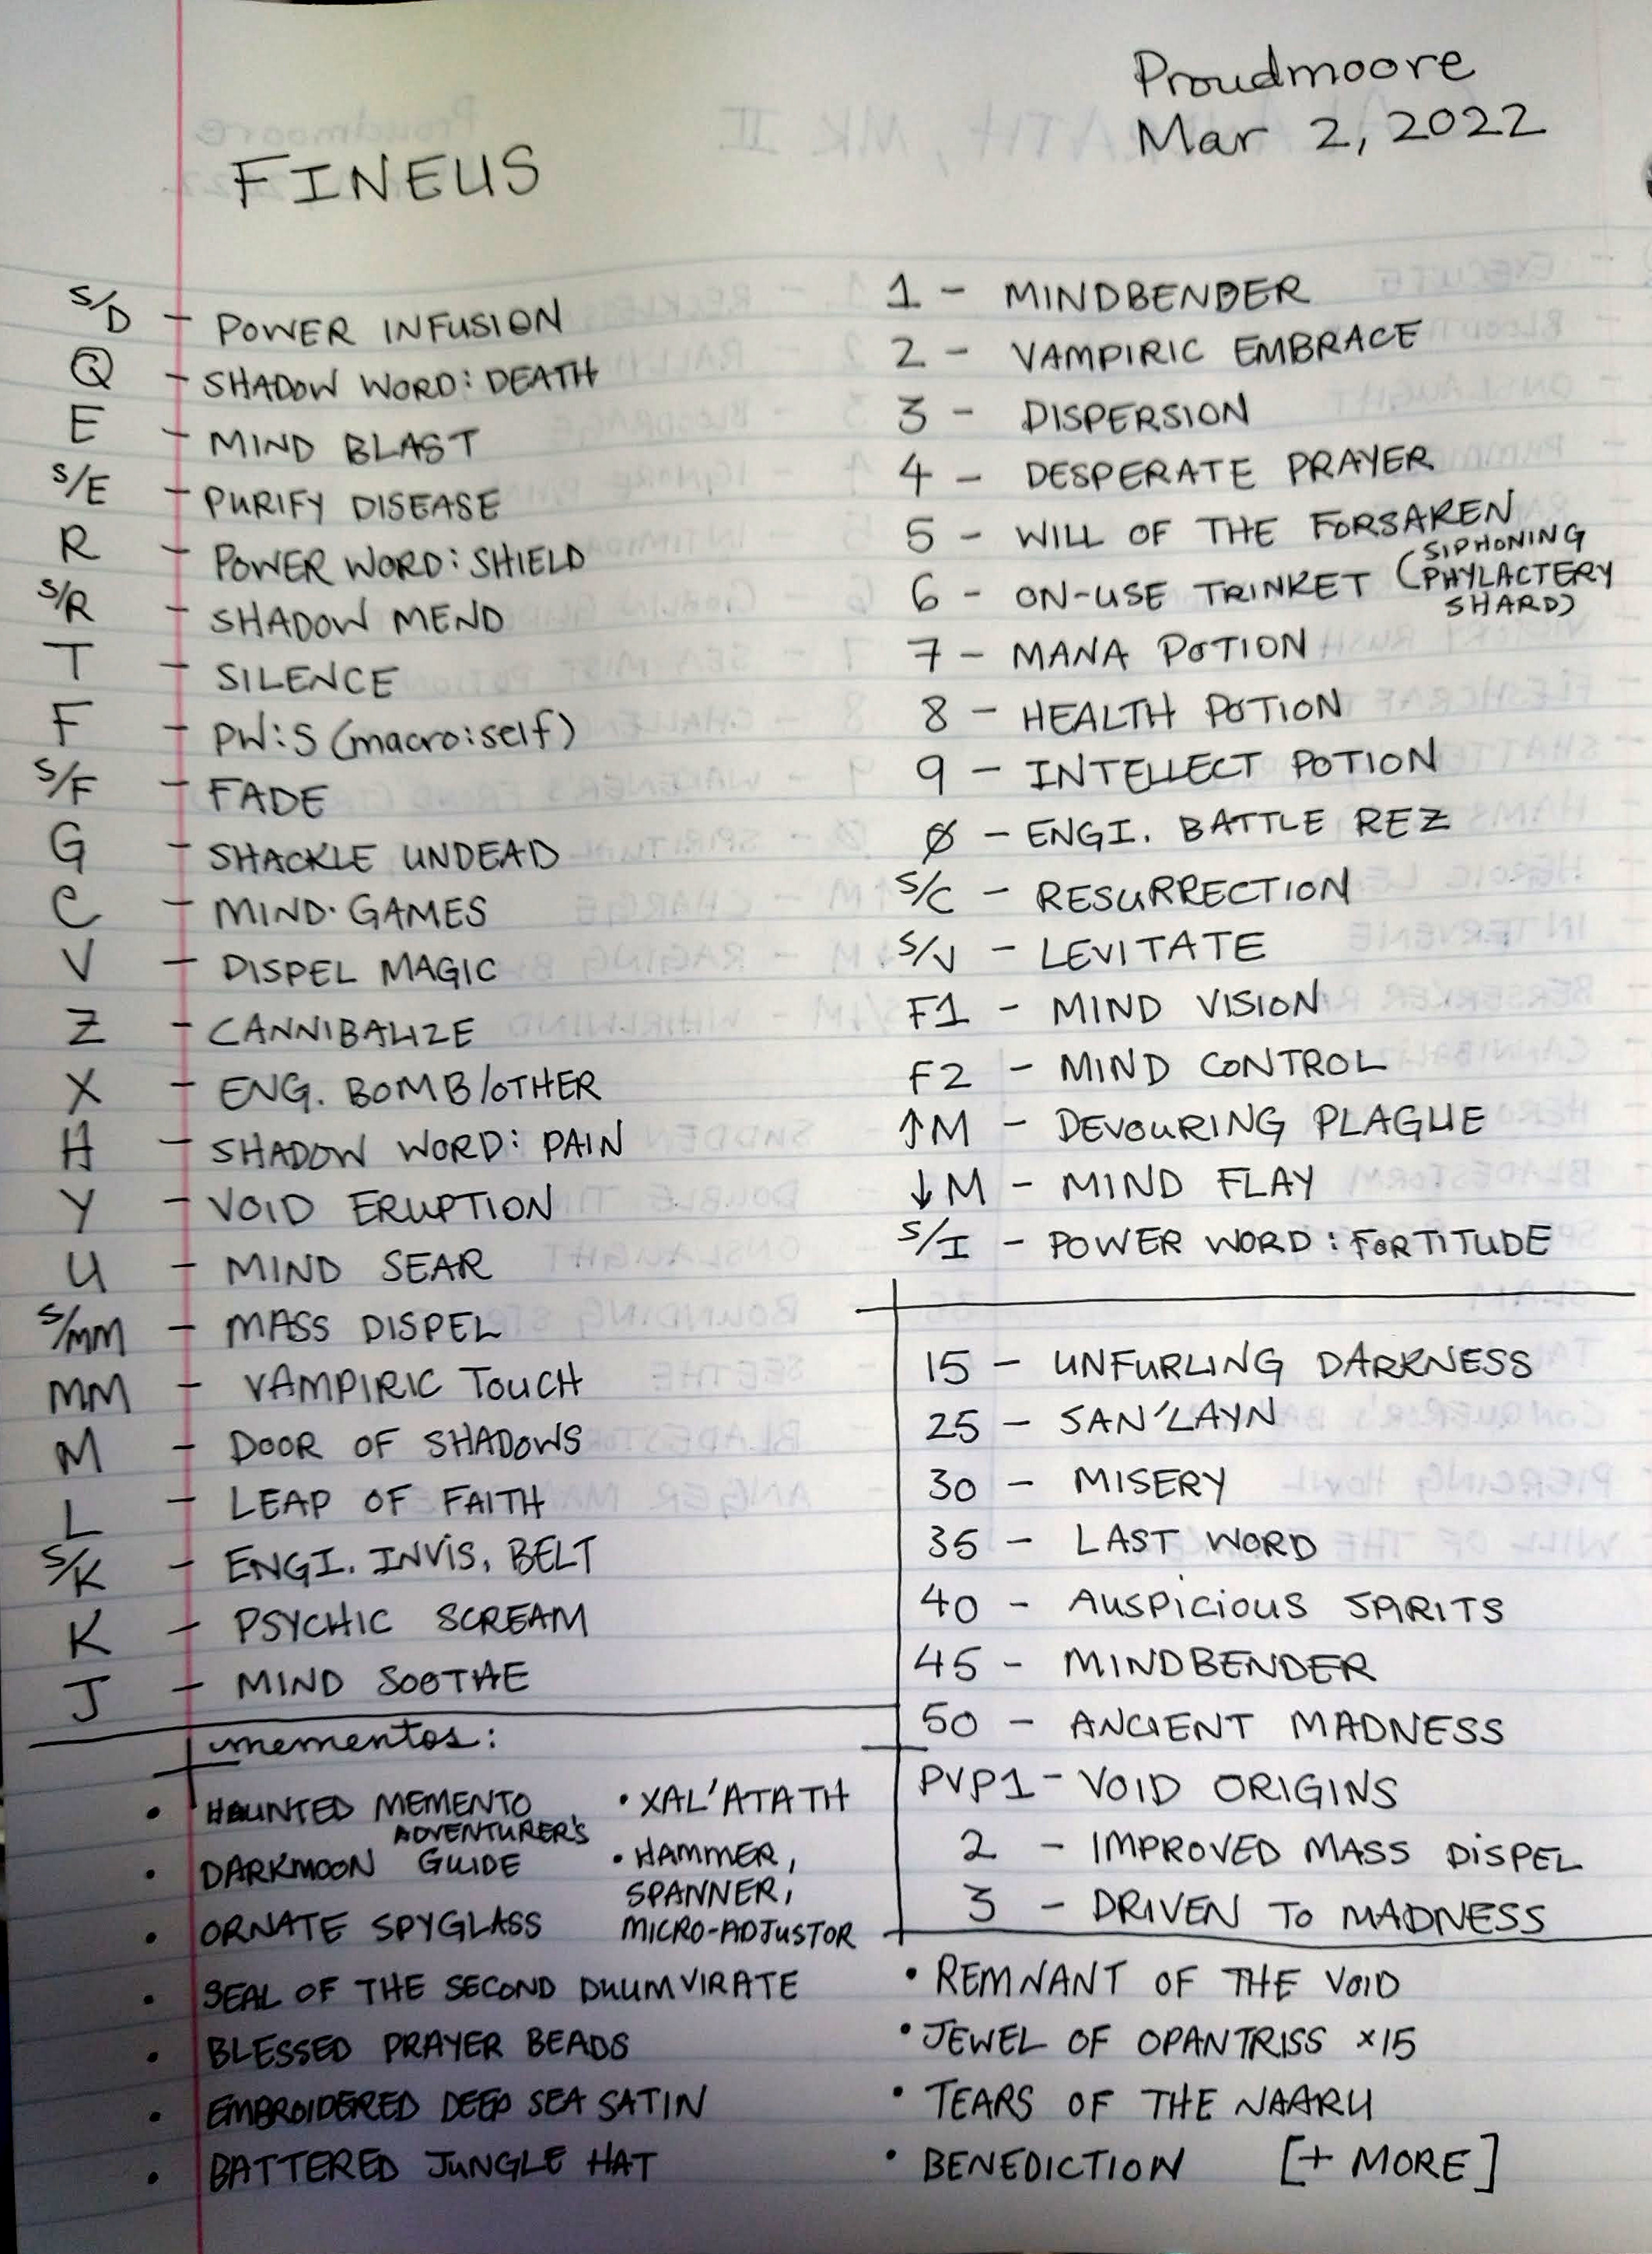 Proudmoore
Mar 2, 2022
FINEUS
S/D - POWER INFUSION
Q - SHADOW WORD: DEATH
E - MIND BLAST
S/E - PURIFY DISEASE
R - POWER WORD: SHIELD
S/R - SHADOW MEND
T - SILENCE
F - PW:S (macro: self)
S/F - FADE
G - SHACKLE UNDEAD
C - MIND·GAMES
V - DISPEL MAGIC
Z - CANNIBALIZE
X - ENG. BOMB/OTHER
H - SHADOW WORD: PAIN
Y - VOID ERUPTION
U - MIND SEAR
S/MM - MASS DISPEL
MM - VAMPIRIC TOUCH
M - DOOR OF SHADOWS
L - LEAP OF FAITH
S/K - ENGI. INVIS. BELT
K - PSYCHIC SCREAM
J - MIND SOOTHE
1 - MINDBENDER
2 - VAMPIRIC EMBRACE
3 - DISPERSION
4 - DESPERATE PRAYER
5 - WILL OF THE FORSAKEN
6 - ON-USE TRINKET (SIPHONING
PHYLACTERY
SHARD)
7 - MANA POTION
8 - HEALTH POTION
9 - INTELLECT POTION
Ø - ENGI. BATTLE REZ
S/C - RESURRECTION
S/V - LEVITATE
F1 - MIND VISION
F2 - MIND CONTROL
↑M - DEVOURING PLAGUE
↓M - MIND FLAY
S/I - POWER WORD: FORTITUDE
15 - UNFURLING DARKNESS
25 - SAN'LAYN
30 - MISERY
35 - LAST WORD
40 - AUSPICIOUS SPIRITS
45 - MINDBENDER
50 - ANCIENT MADNESS
PVP1 - VOID ORIGINS
2 - IMPROVED MASS DISPEL
3 - DRIVEN TO MADNESS
mementos:
• HAUNTED MEMENTO
• DARKMOON ADVENTURER'S GUIDE
• ORNATE SPYGLASS
• XAL'ATATH
• HAMMER,
SPANNER,
MICRO-ADJUSTOR
• SEAL OF THE SECOND DUUMVIRATE
• BLESSED PRAYER BEADS
• EMBROIDERED DEEP SEA SATIN
• BATTERED JUNGLE HAT
• REMNANT OF THE VOID
• JEWEL OF OPANTRISS ×15
• TEARS OF THE NAARU
• BENEDICTION [+ MORE]